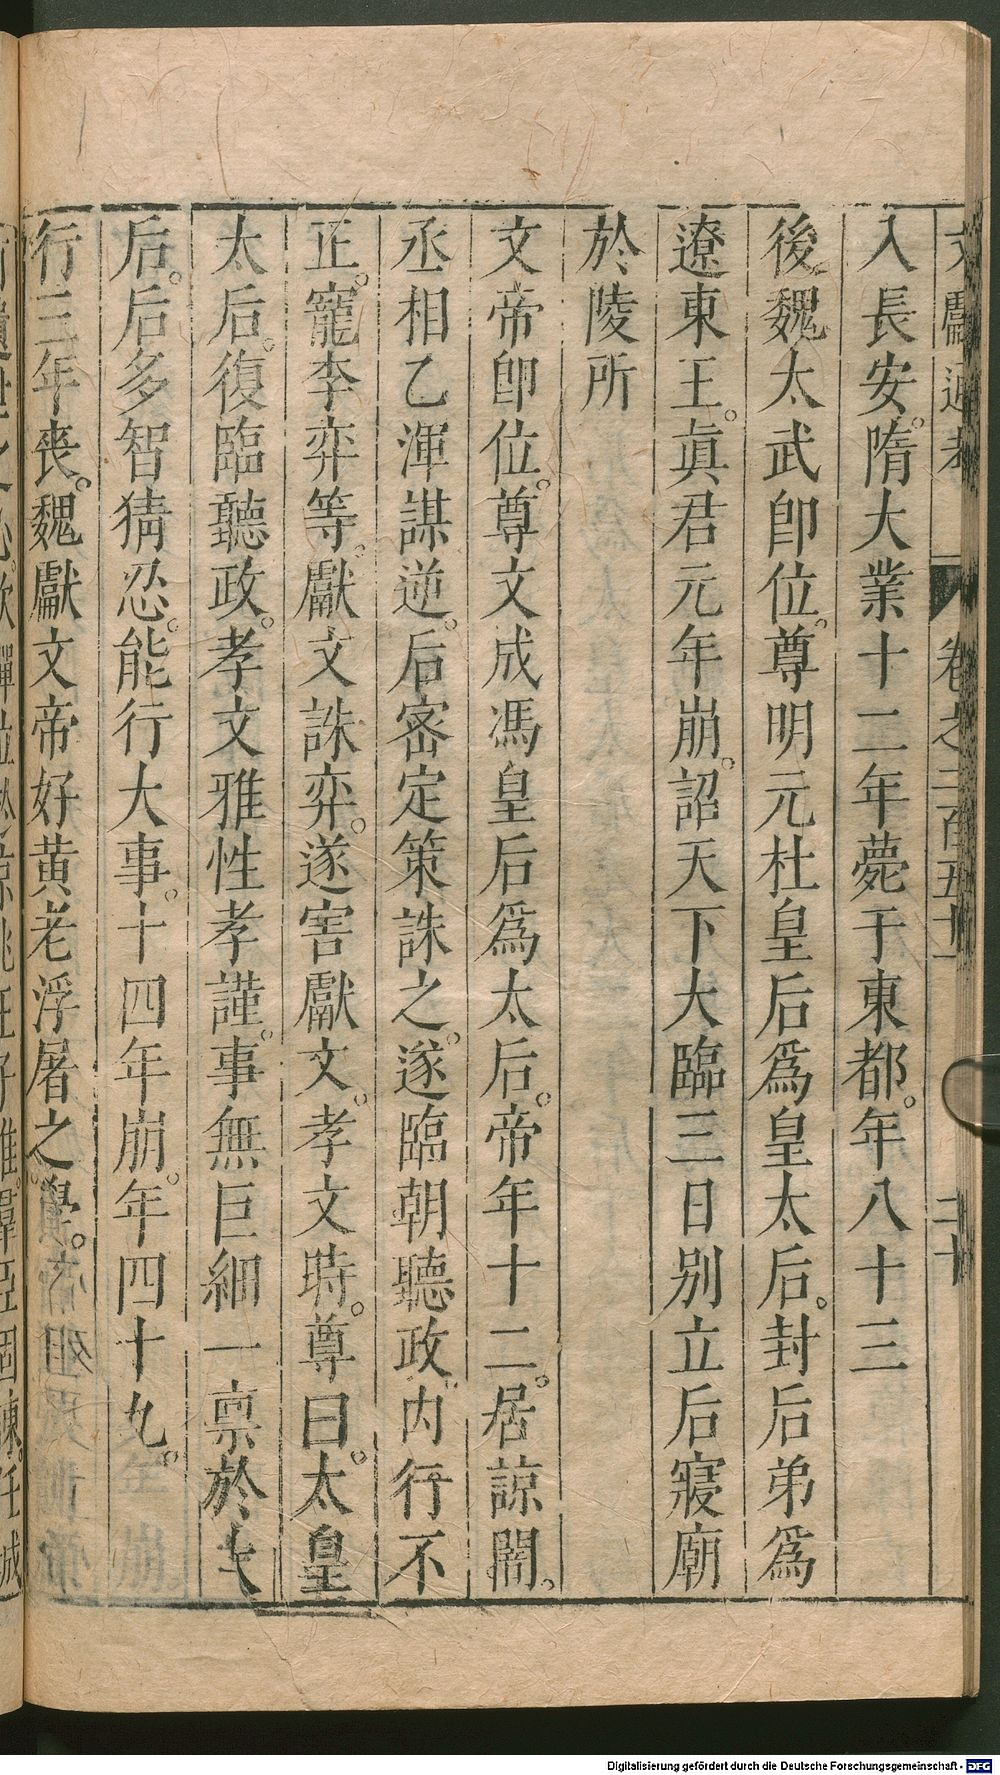 文獻通考 卷之二百五十一 二十
入長安。隋大業十二年薨于東都。年八十三
後魏太武卽位。尊明元杜皇后爲皇太后。封后弟爲
遼東王。眞君元年崩。詔天下大臨三日別立后寢廟
於陵所
文帝卽位。尊文成馮皇后爲太后。帝年十二。居諒闇。
丞相乙渾謀逆。后密定策誅之。遂臨朝聽政。內行不
正。寵李弈等。獻文誅弈。遂害獻文。孝文時。尊曰。太皇
太后。復臨聽政。孝文雅性孝謹。事無巨細一稟於太
后。后多智猜忍。能行大事。十四年崩。年四十九。
行三年喪。魏獻文帝好黃老浮屠之學。
Digitalisierung gefördert durch die Deutsche Forschungsgemeinschaft - DFG